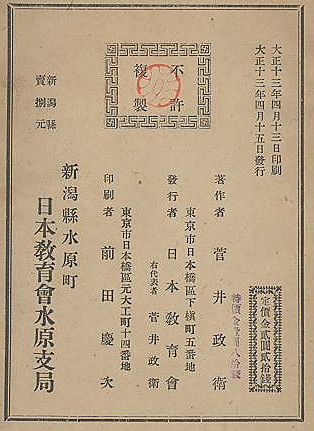 大正十三年四月十三日印刷
大正十三年四月十五日發行
定價金貳圓貳拾錢
不許
複製
著作者 菅井政衛
東京市日本橋區下槇町五番地
發行者 日本教育會
右代表者 菅井政衛
東京市日本橋區元大工町十四番地
印刷者 前田慶次
新潟縣
賣捌元
新潟縣水原町
日本教育會水原支局